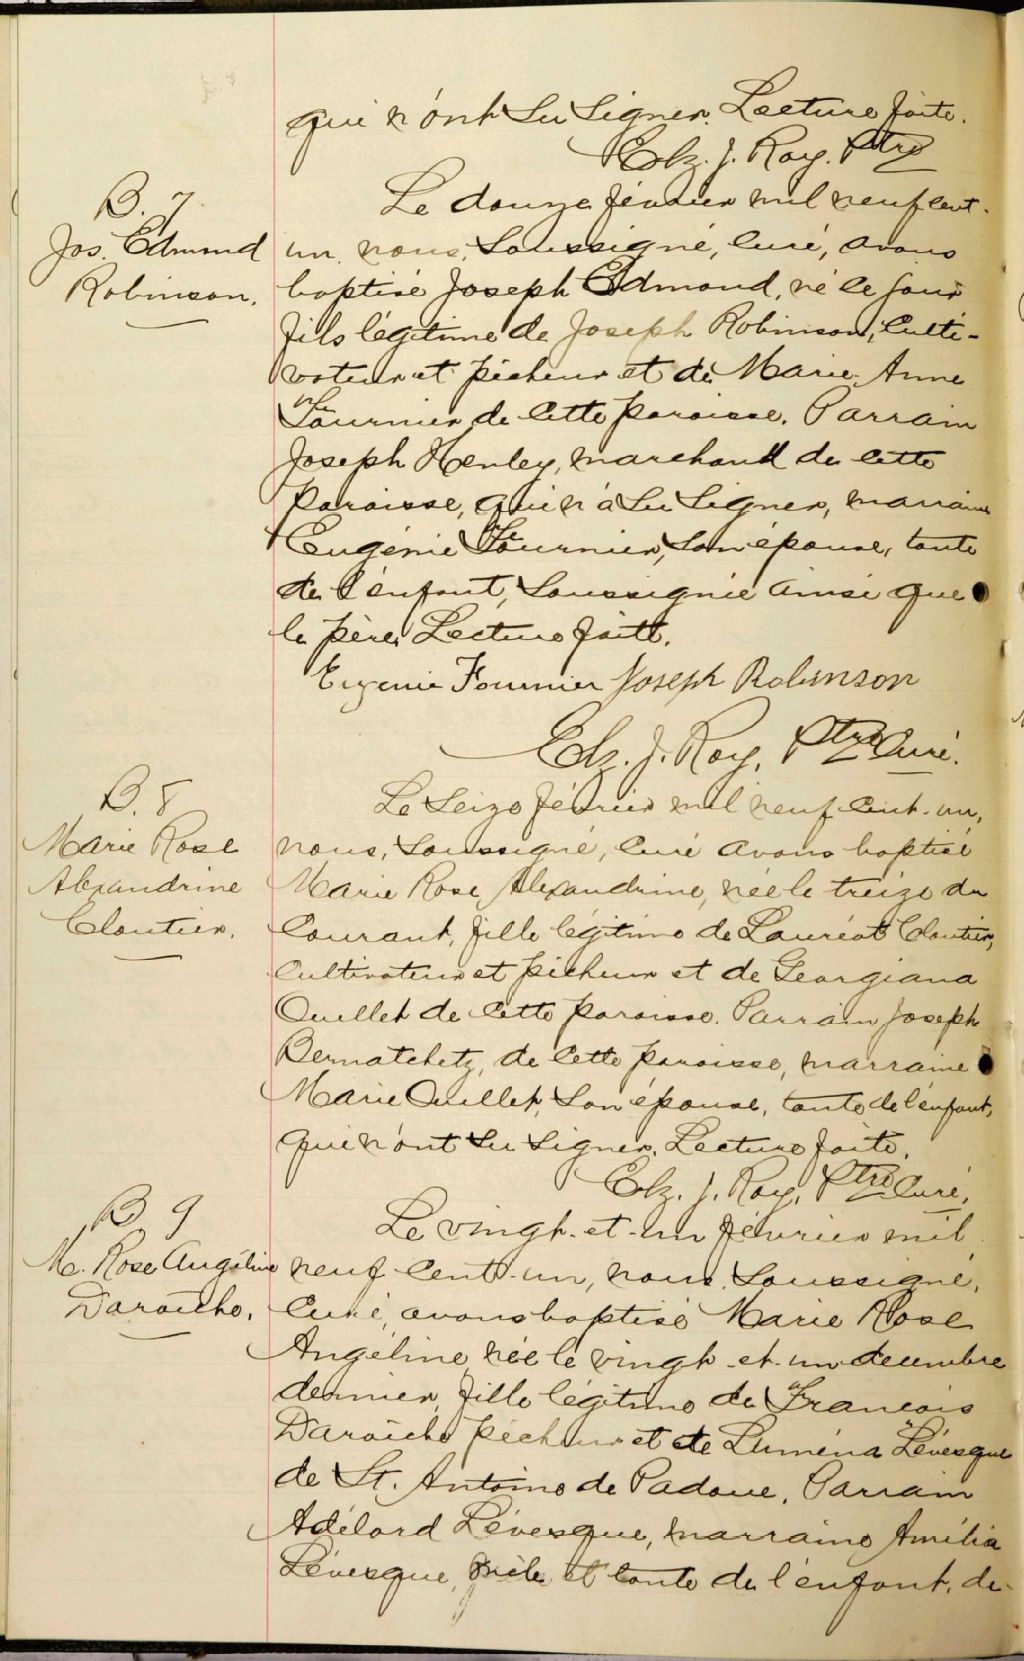 qui n'ont su signer. Lecture faite.
Elz. J. Roy. Ptre
B. 7.
Jos. Edmond
Robinson.
Le douze février mil neuf cent-
un, nous, soussigné, curé, avons
baptisé Joseph Edmond, né ce jour
fils légitime de Joseph Robinson, culti-
vateur et pêcheur et de Marie-Anne
Fournier de cette paroisse. Parrain
Joseph Henley, marchand de cette
paroisse, qui n'a su signer, marraine
Eugénie Fournier, son épouse, tante
de l'enfant, soussignée ainsi que
le père. Lecture faite.
Eugenie Fournier Joseph Robinson
Elz. J. Roy, Ptre Curé.
B. 8
Marie Rose
Alexandrine
Cloutier.
Le seize février mil neuf cent-un,
nous, soussigné, curé avons baptisé
Marie Rose Alexandrine, née le treize du
courant, fille légitime de Lauréat Cloutier,
cultivateur et pêcheur et de Georgiana
Ouellet de cette paroisse. Parrain Joseph
Bernatchetz, de cette paroisse, marraine
Marie Ouellet, son épouse, tante de l'enfant,
qui n'ont su signer. Lecture faite.
Elz. J. Roy, Ptre Curé.
B 9
M. Rose Angéline
Daraîche.
Le vingt-et-un février mil
neuf cent-un, nous soussigné,
curé, avons baptisé Marie Rose
Angéline, née le vingt-et-un decembre
dernier, fille légitime de Francois
Daraîche pêcheur et de Luména Lévesque
de St. Antoine de Padoue. Parrain
Adélard Lévesque, marraine Amélia
Lévesque, et tante de l'enfant, de